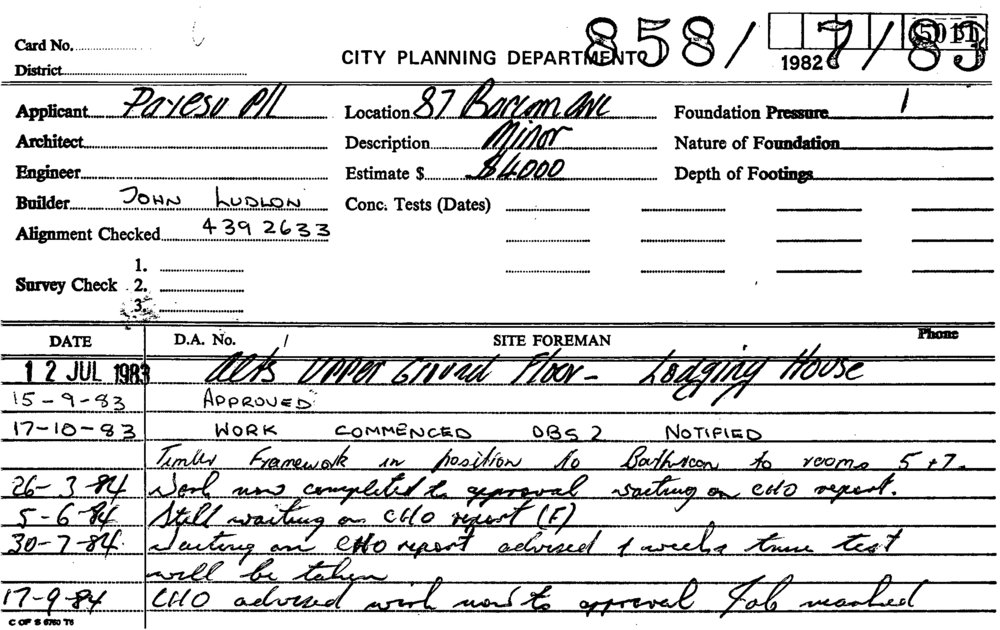 858/7/83
5011
Card No.
CITY PLANNING DEPARTMENT
1982
District
Applicant Payesu P/L Location 87 Barcom Ave Foundation Pressure
Architect Description Minor Nature of Foundation
Engineer Estimate $ $4000 Depth of Footings
Builder JOHN LUDLON Conc. Tests (Dates)
Alignment Checked 439 2633
1.
Survey Check 2.
3.
DATE D.A. No. / SITE FOREMAN Phone
12 JUL 1983 Alts Upper Ground Floor - Lodging House
15-9-83 APPROVED
17-10-83 WORK COMMENCED DBS 2 NOTIFIED
Timber Framework in position to Bathroom to rooms 5+7.
26-3-84 Work now completed to approval waiting on CHO report.
5-6-84 Still waiting on CHO report (F)
30-7-84 Waiting on CHO report advised weeks time test
will be taken
17-9-84 CHO advised work now to approval Job marked
C OF S 6760 T6